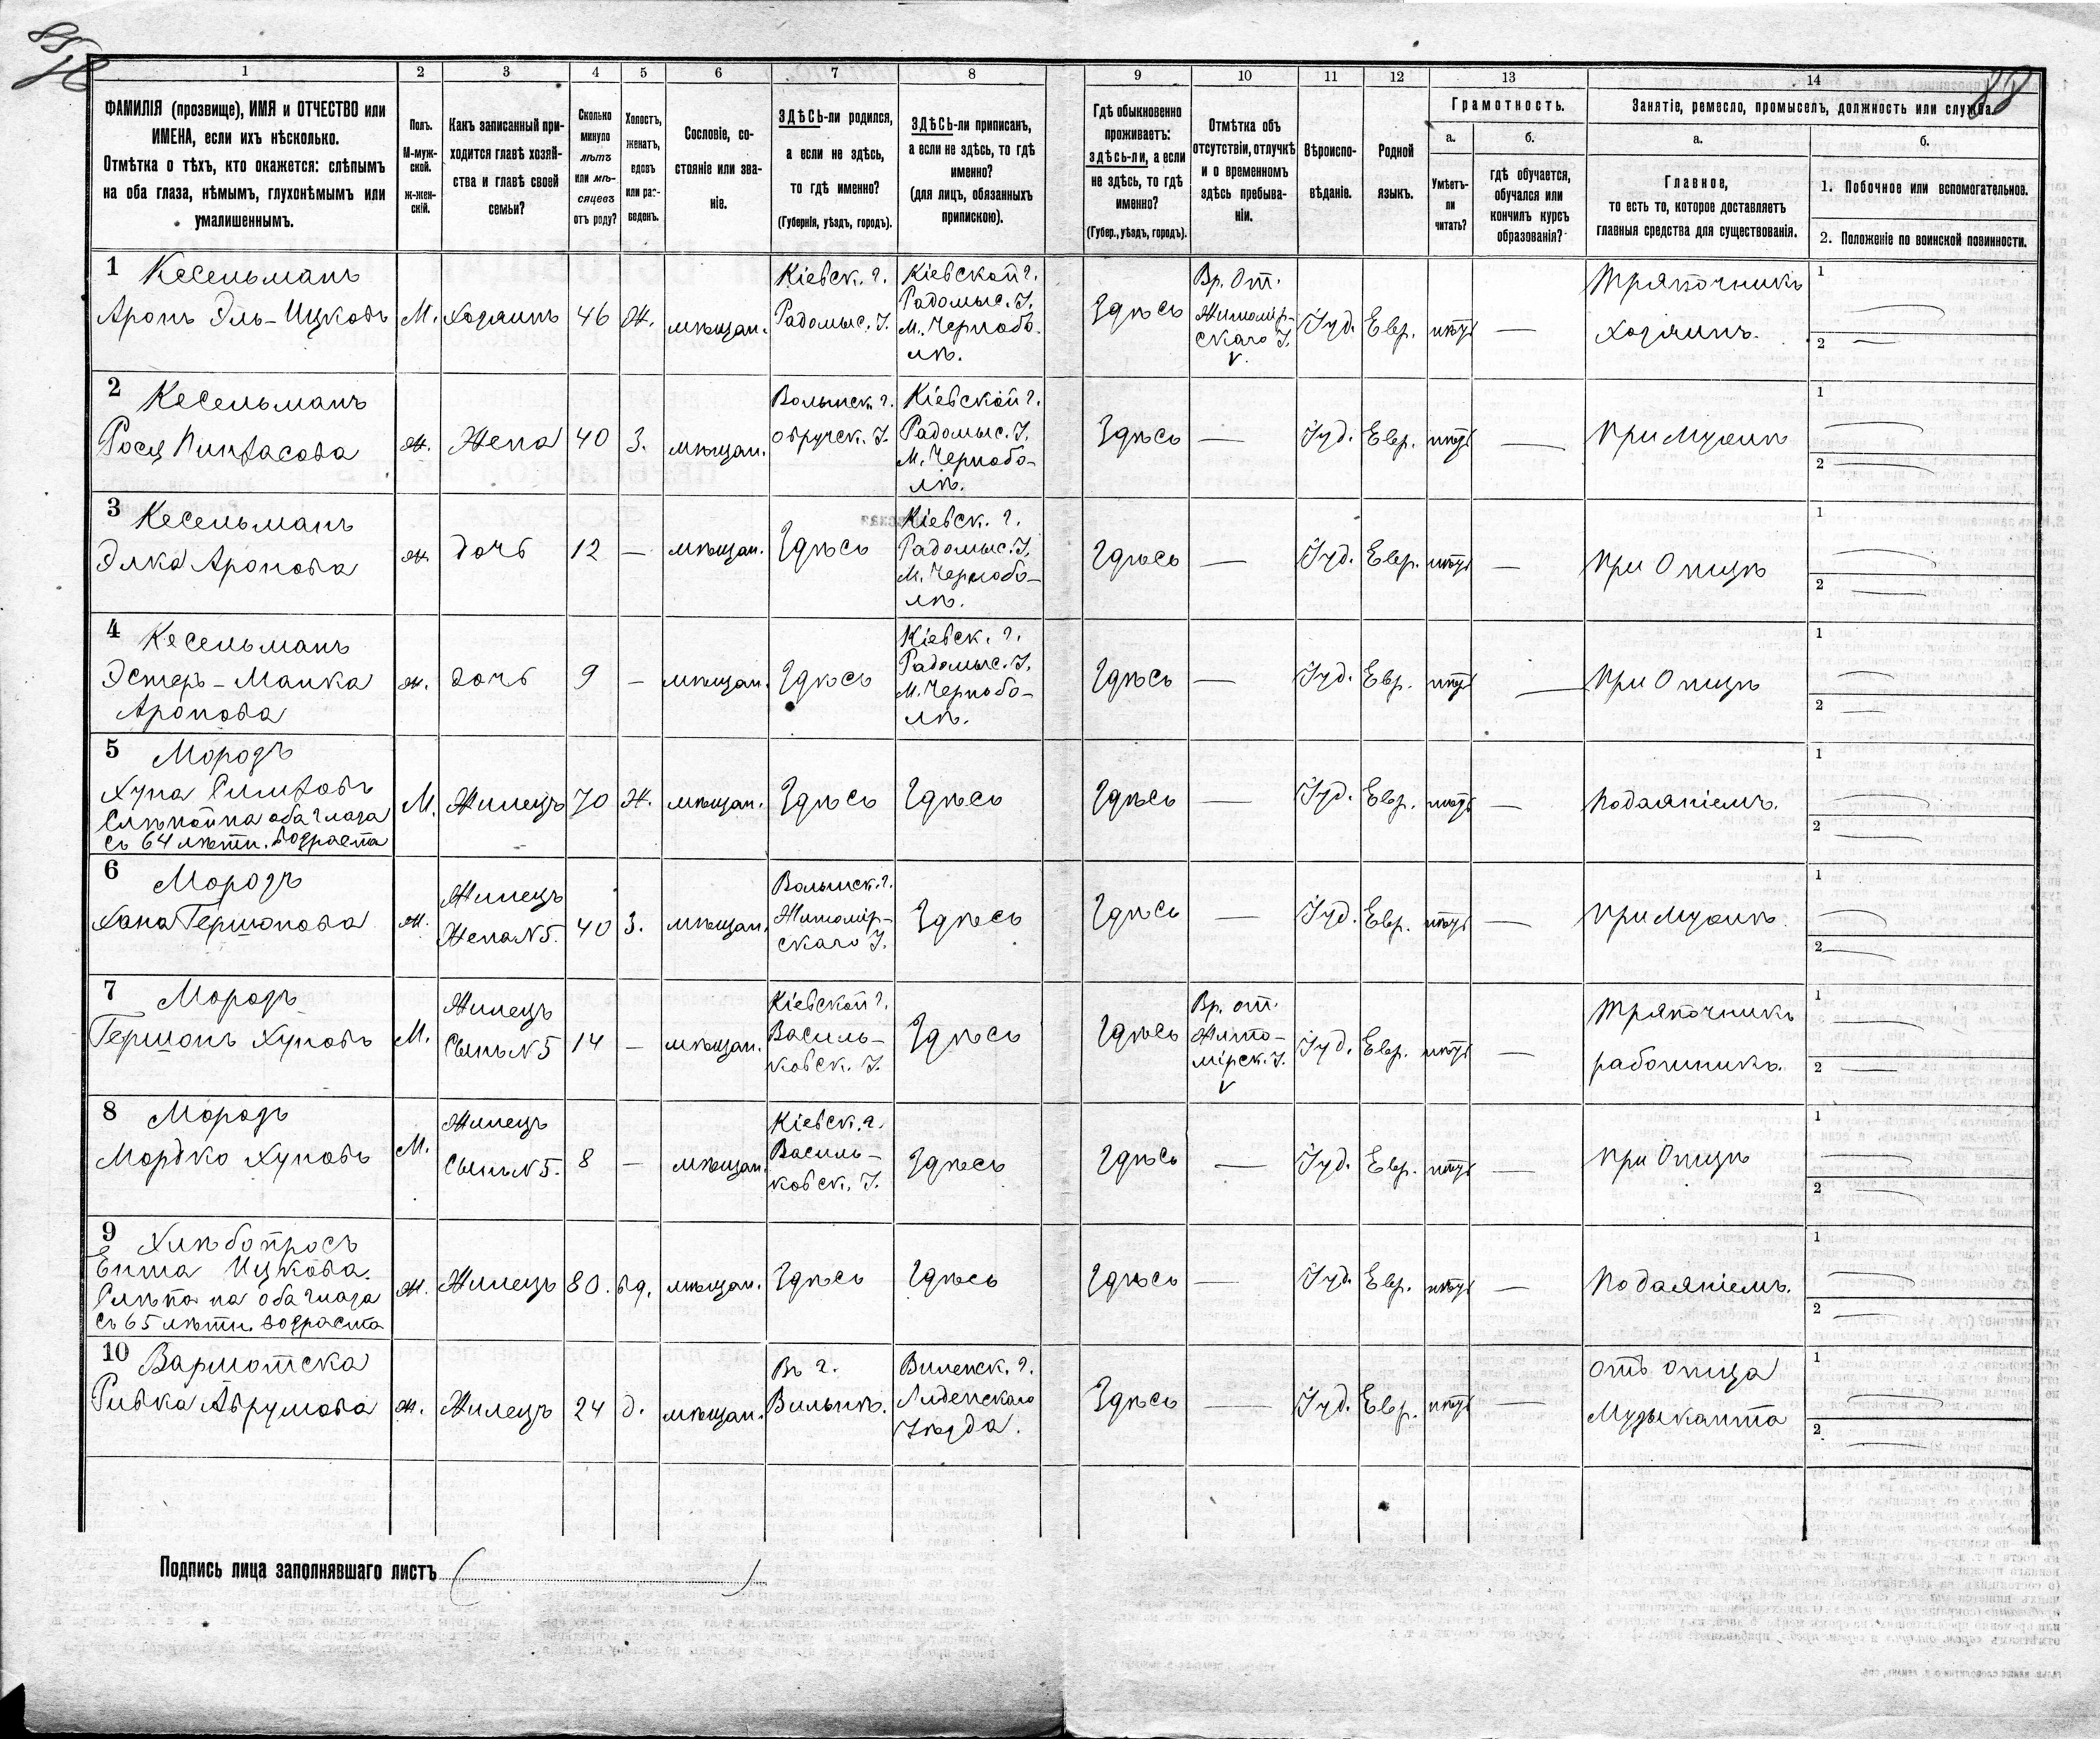 1 2 3 4 5 6 7 8 9 10 11 12 13 14
ФАМИЛІЯ (прозвище), ИМЯ и ОТЧЕСТВО или
ИМЕНА, если ихъ нѣсколько.
Отмѣтка о тѣхъ, кто окажется: слѣпымъ
на оба глаза, нѣмымъ, глухонѣмымъ или
умалишеннымъ.
Полъ.
М-муж-
ской.
ж-жен-
скій.
Какъ записанный при-
ходится главѣ хозяй-
ства и главѣ своей
семьи?
Сколько
минуло
лѣтъ
или мѣ-
сяцевъ
отъ роду?
Холостъ,
женатъ,
вдовъ
или раз-
веденъ.
Сословіе, со-
стояніе или зва-
ніе.
ЗДѢСЬ-ли родился,
а если не здѣсь,
то гдѣ именно?
(Губернія, уѣздъ, городъ).
ЗДѢСЬ-ли приписанъ,
а если не здѣсь, то гдѣ
именно?
(для лицъ, обязанныхъ
припискою).
Гдѣ обыкновенно
проживаетъ:
здѣсь-ли, а если
не здѣсь, то гдѣ
именно?
(Губер., уѣздъ, городъ).
Отмѣтка объ
отсутствіи, отлучкѣ
и о временномъ
здѣсь пребыва-
ніи.
Вѣроиспо-
вѣданіе.
Родной
языкъ.
Грамотность.
а.
Умѣетъ-
ли
читать?
б.
гдѣ обучается,
обучался или
кончилъ курсъ
образованія?
Занятіе, ремесло, промыселъ, должность или служба.
а.
Главное,
то есть то, которое доставляетъ
главныя средства для существованія.
б.
1. Побочное или вспомогательное.
2. Положеніе по воинской повинности.
1 Кесельманъ
Аронъ Эль-Ицковъ
М.
Хозяинъ
46
Ж.
мѣщан.
Кіевск. г.
Радомыс. У.
Кіевской г.
Радомыс. У.
М. Чернобы-
лѣ.
Здѣсь
Вр. От.
Житомір-
скаго У.
Іуд.
Евр.
нѣтъ
—
Тряпочникъ
хозяинъ.
1
2
2 Кесельманъ
Рося Пинхасова
ж.
Жена
40
З.
мѣщан.
Волынск. г.
Овручск. У.
Кіевской г.
Радомыс. У.
М. Чернобы-
лѣ.
Здѣсь
—
Іуд.
Евр.
нѣтъ
—
При Мужѣ
1
2
3 Кесельманъ
Элка Аронова
ж.
дочь
12
—
мѣщан.
Здѣсь
Кіевск. г.
Радомыс. У.
М. Чернобы-
лѣ.
Здѣсь
—
Іуд.
Евр.
нѣтъ
—
При Отцѣ
1
2
4 Кесельманъ
Эстеръ-Малка
Аронова
ж.
дочь
9
—
мѣщан.
Здѣсь
Кіевск. г.
Радомыс. У.
М. Чернобы-
лѣ.
Здѣсь
—
Іуд.
Евр.
нѣтъ
—
При Отцѣ
1
2
5 Морозъ
Слѣпой на оба глаза
съ 64 лѣтн. возраста
М.
Жилецъ
70
Ж.
мѣщан.
Здѣсь
Здѣсь
Здѣсь
—
Іуд.
Евр.
нѣтъ
—
Подаяніемъ.
1
2
6 Морозъ
Хана Гершонова
ж.
Жилецъ
Жена №5.
40
З.
мѣщан.
Волынск. г.
Житомір-
скаго У.
Здѣсь
Здѣсь
—
Іуд.
Евр.
нѣтъ
—
При Мужѣ.
1
2
7 Морозъ
Гершонъ Хуновъ
М.
Жилецъ
Сынъ №5
14
—
мѣщан.
Кіевской г.
Василь-
ковск. У.
Здѣсь
Здѣсь
Вр. от.
Жито-
мірск. У.
Іуд.
Евр.
нѣтъ
—
Тряпочникъ
работникъ.
1
2
8 Морозъ
Мордко Хуновъ
М.
Жилецъ
Сынъ №5.
8
—
мѣщан.
Кіевск. г.
Василь-
ковск. У.
Здѣсь
Здѣсь
—
Іуд.
Евр.
нѣтъ
—
При Отцѣ
1
2
9 Хлѣбопросъ
Ента Ицкова.
Слѣпа на оба глаза
съ 65 лѣтн. возраста
ж.
Жилецъ
80.
вд.
мѣщан.
Здѣсь
Здѣсь
Здѣсь
—
Іуд.
Евр.
нѣтъ
—
Подаяніемъ.
1
2
10 Варшотска
Ривка Аврумова
ж.
Жилецъ
24
д.
мѣщан.
Въ г.
Вильнѣ.
Виленск. г.
Лиденскаго
Уѣзда.
Здѣсь
—
Іуд.
Евр.
нѣтъ
—
Отъ Отца
Музыканта
1
2
Подпись лица заполнявшаго листъ